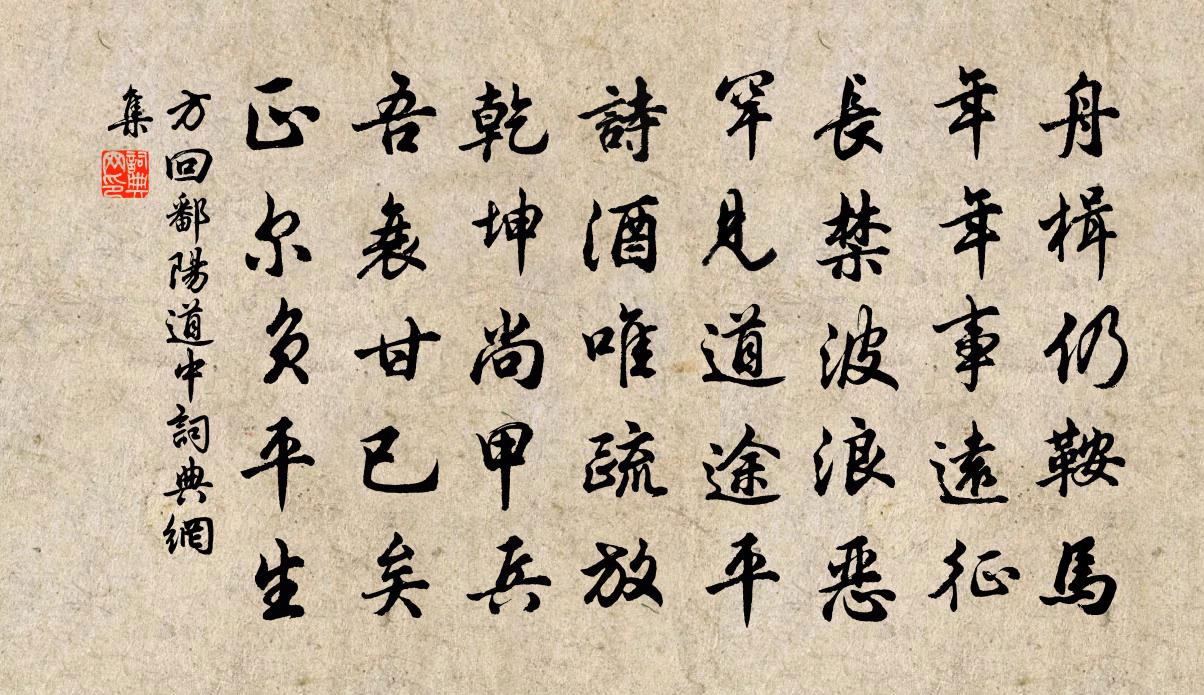 舟楫仍鞍馬
年年事遠征
長禁波浪惡
罕見道途平
詩酒唯疏放
乾坤尚甲兵
吾衰甘已矣
正尔負平生
方回鄱陽道中詞典網
集
詞典網印